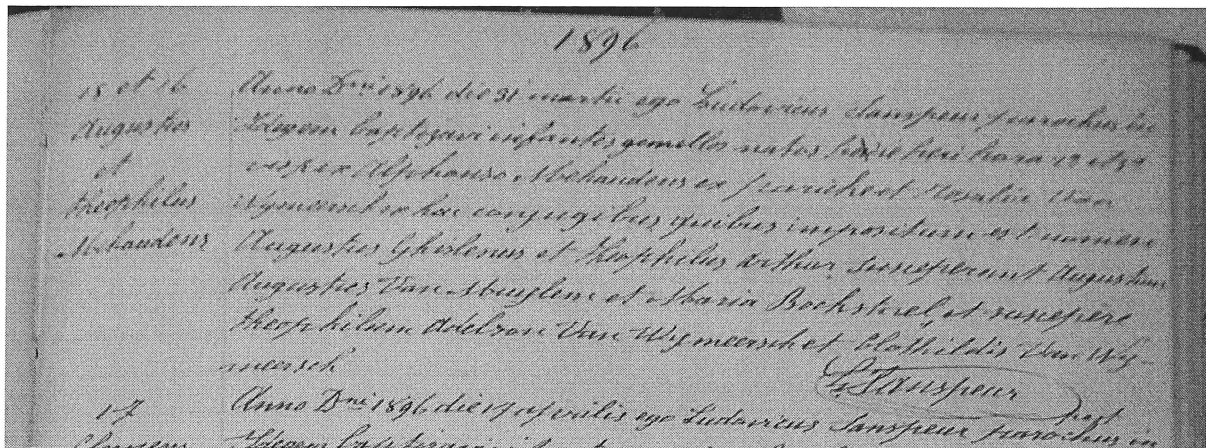 1896
15 et 16
Augustus
et
Theophilus
Mehaudens
Anno Dni 1896 die 31 martii ego Ludovicus Sanspeur parochus in
Idegem baptizavi infantes gemellos natos heri hora 12 et
vesp ex Alphonso Mehaudens ex parochia et Rosalia Van
Wymeersch ex hac conjugibus quibus impositum est nomen
Augustus Ghislenus et Theophilus Arthur. Susceperunt Augustum
Augustus Van Muylem et Maria Bockstael, et suscepere
Theophilum Adelson Van Wymeersch et Clothildis Van Wy-
meersch
L Sanspeur past
17
Clemens
Anno Dni 1896 die 17 aprilis ego Ludovicus Sanspeur parochus in
Idegem baptizavi